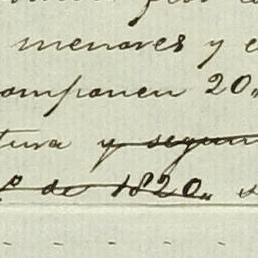 menores y e
omponen 20"
tura y segun
1º de 1820"